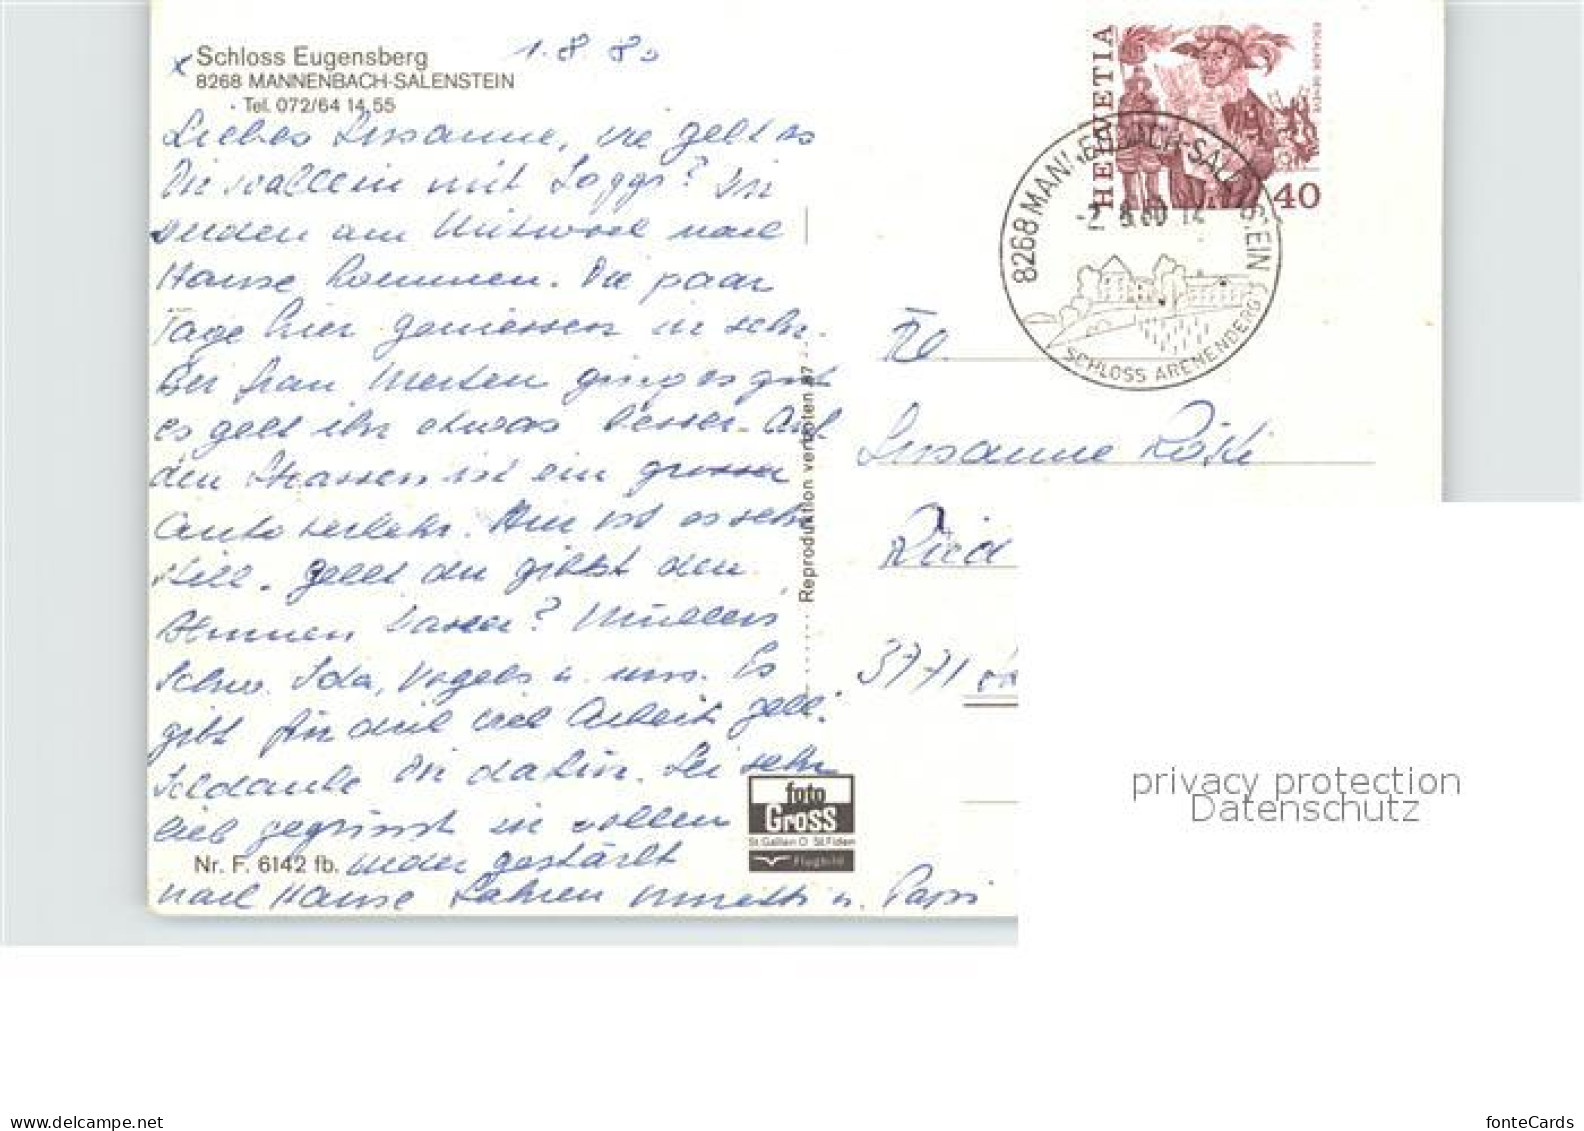 Schloss Eugensberg
8268 MANNENBACH-SALENSTEIN
Tel. 072/64 14 55
1.8.80
Liebes Susanne, wie geht es
Dir allein mit
werden am Mittwoch nach
Hause kommen. Die paar
Tage hier geniessen wir sehr.
Bei Frau ging es gut
es geht ihr etwas besser. Auf
den Strassen ist ein grosser
Autoverkehr. Hier ist es sehr
still. gellt du gibst den
Blumen Wasser? Müllers
Schw. Ida, Vogels u. uns. Es
gibt für dich viel Arbeit gell.
Ich danke Dir dafür. Sei sehr
lieb gegrüsst wir wollen
wieder gestärkt
nach Hause fahren Mueti u. Papi
Nr. F. 6142 fb.
Reproduktion verboten 87
foto
Gross
St. Gallen O St. Fiden
Flugbild
HELVETIA
ESCALADE GENEVE
40
8268 MANNENBACH-SALENSTEIN
-2. 8.80 12
SCHLOSS ARENENBERG
Susanne
Ried
3771
privacy protection
Datenschutz
www.delcampe.net
fonteCards